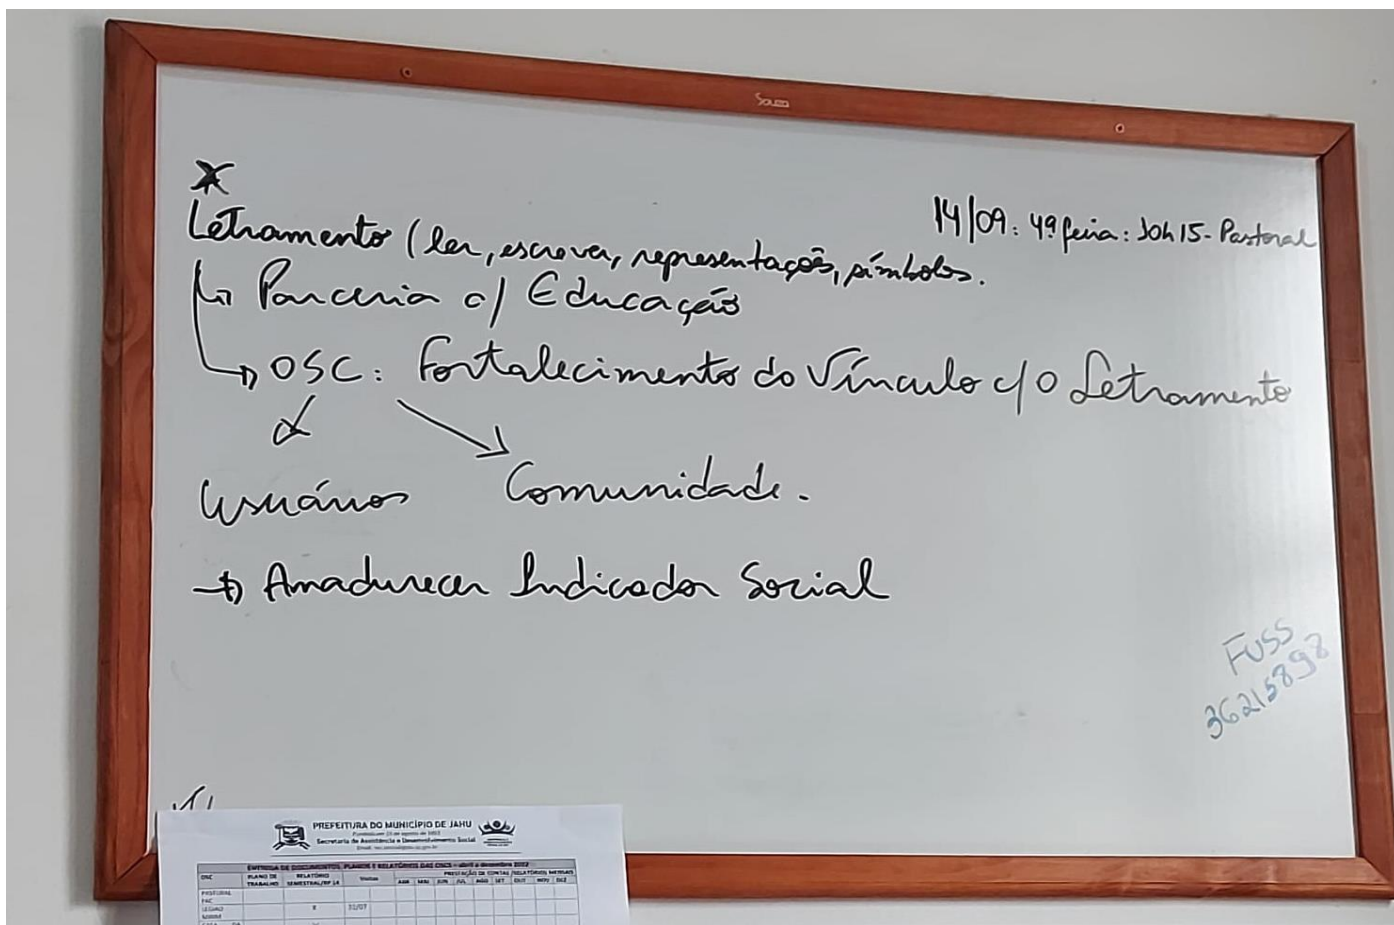 Souza
14/09: 4ª feira: 10h15 - Pastoral
Letramento (ler, escrever, representações, símbolos.
Parceria c/ Educação
OSC: Fortalecimento do Vínculo c/ o Letramento
Usuários Comunidade.
Amadurecer Indicador Social
FUSS
36215898
PREFEITURA DO MUNICÍPIO DE JAHU
Secretaria de Assistência e Desenvolvimento Social
ENTREGA DE DOCUMENTOS, PLANOS E RELATÓRIOS DAS OSCS - abril a dezembro 2022
PRESTAÇÃO DE CONTAS/RELATÓRIOS MENSAIS
OSC PLANO DE TRABALHO RELATÓRIO SEMESTRAL/RP 14 Visitas ABR MAI JUN JUL AGO SET OUT NOV DEZ
PASTORAL
FAC
LEGIÃO X 22/07
MIRIM